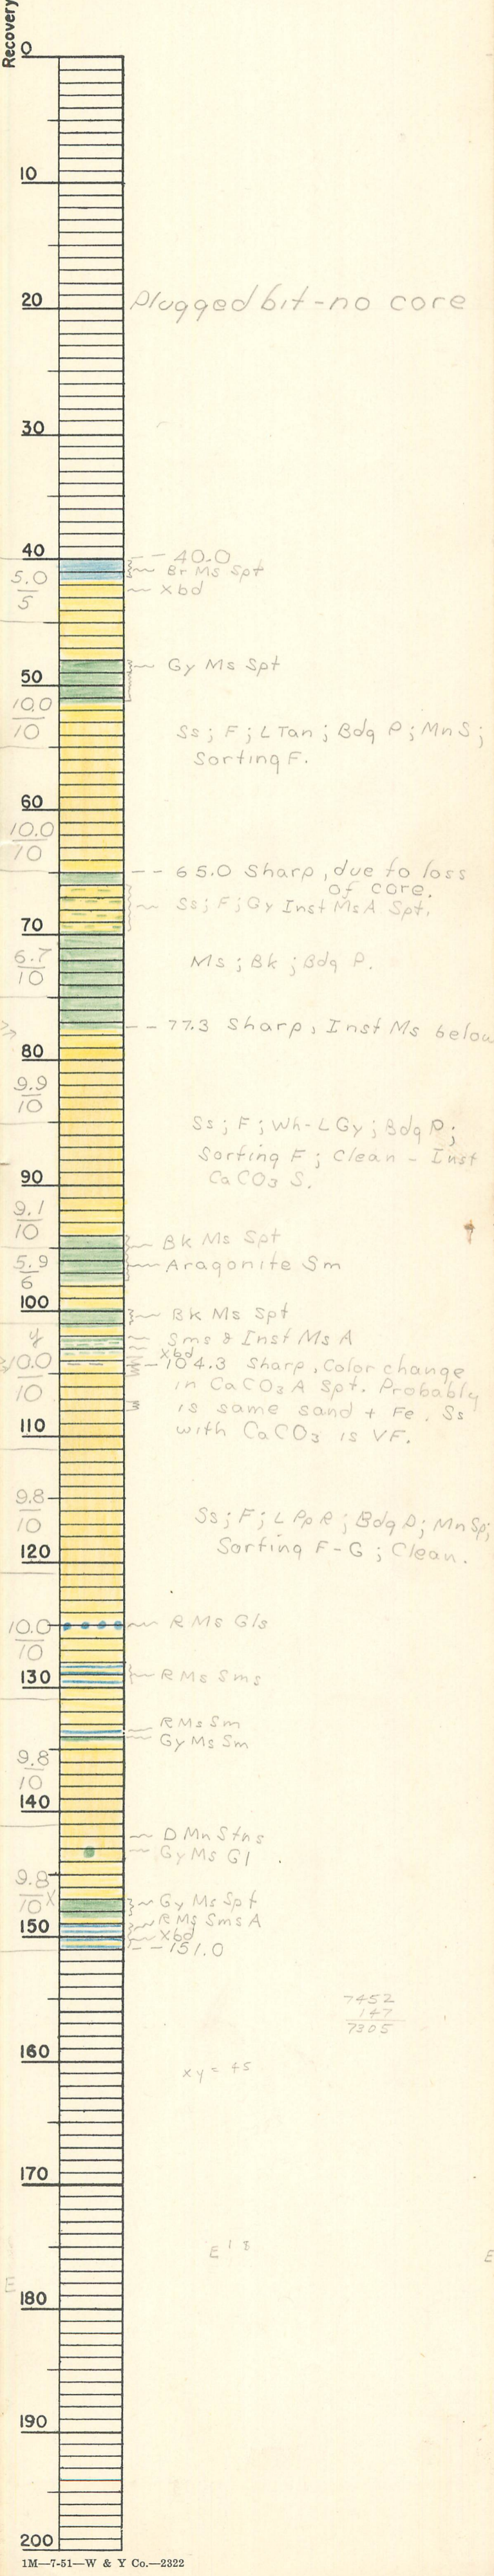 Recovery
0
10
20 Plugged bit - no core
30
40
-- 40.0
5.0
5
Br Ms Spt
xbd
Gy Ms Spt
50
10.0
10
Ss; F; L Tan; Bdg P; Mn S;
Sorting F.
60
10.0
10
-- 65.0 Sharp, due to loss
of core.
Ss; F; Gy Inst Ms A Spt.
70
6.7
10
Ms; Bk; Bdg P.
-- 77.3 Sharp, Inst Ms below
80
9.9
10
Ss; F; Wh-LGy; Bdg P;
Sorting F; Clean - Inst
CaCO3 S.
90
9.1
10
Bk Ms Spt
5.9
6
Aragonite Sm
100
Bk Ms Spt
y
Sms & Inst Ms A
xbd
10.0
10
-- 104.3 Sharp, Color change
in CaCO3 A Spt. Probably
is same sand + Fe. Ss
with CaCO3 is VF.
110
9.8
10
Ss; F; L Pp R; Bdg P; Mn Sp;
Sorting F-G; Clean.
120
10.0
10
R Ms Gls
130
R Ms Sms
R Ms Sm
Gy Ms Sm
9.8
10
140
D Mn Stns
Gy Ms Gl
9.8
10 X
Gy Ms Spt
R Ms Sms A
150
Xbd
-- 151.0
7452
147
7305
160
xy = 45
170
E 18
E
E
180
190
200
1M—7-51—W & Y Co.—2322